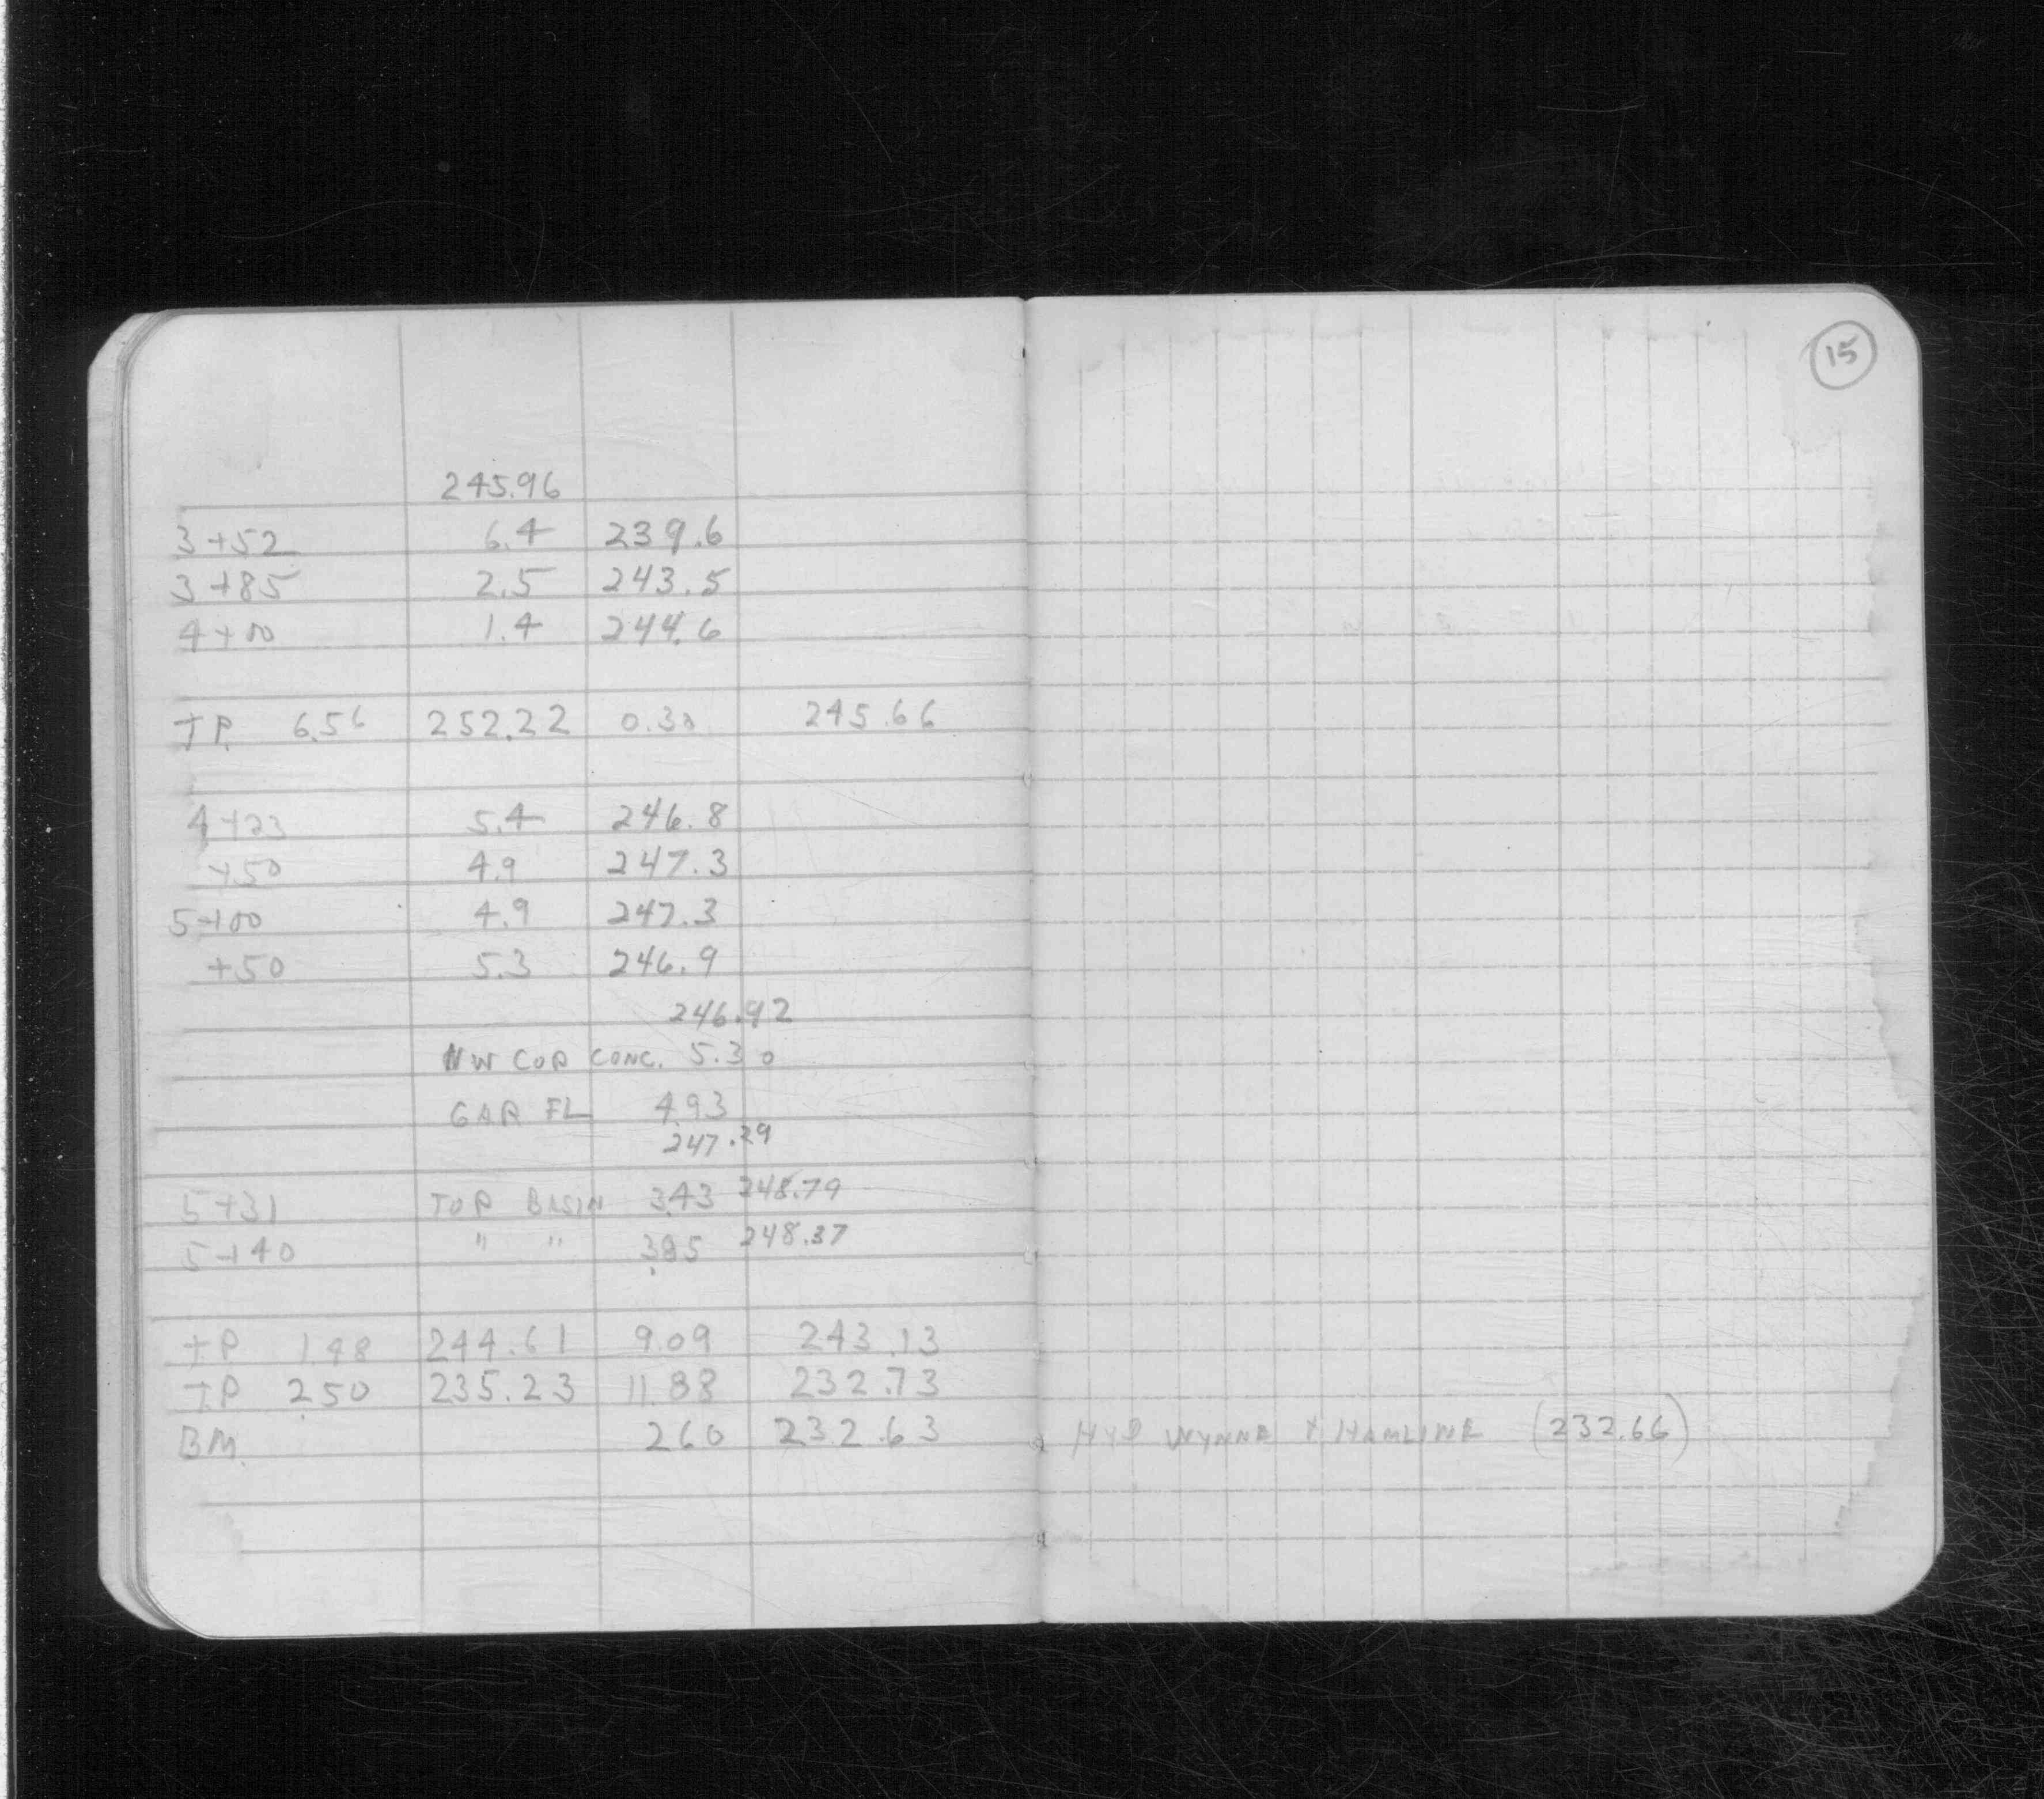 15
245.96
3+52 6.4 239.6
3+85 2.5 243.5
4+00 1.4 244.6
T.P. 6.56 252.22 0.30 245.66
4+23 5.4 246.8
+50 4.9 247.3
5+00 4.9 247.3
+50 5.3 246.9
246.92
NW COR CONC. 5.30
GAR FL 4.93
247.29
5+31 TOP BASIN 3.43 248.79
5+40 " " 3.85 248.37
T.P. 1.48 244.61 9.09 243.13
T.P. 2.50 235.23 11.88 232.73
BM. 2.60 232.63 HYD WYNNE + HAMLINE (232.66)